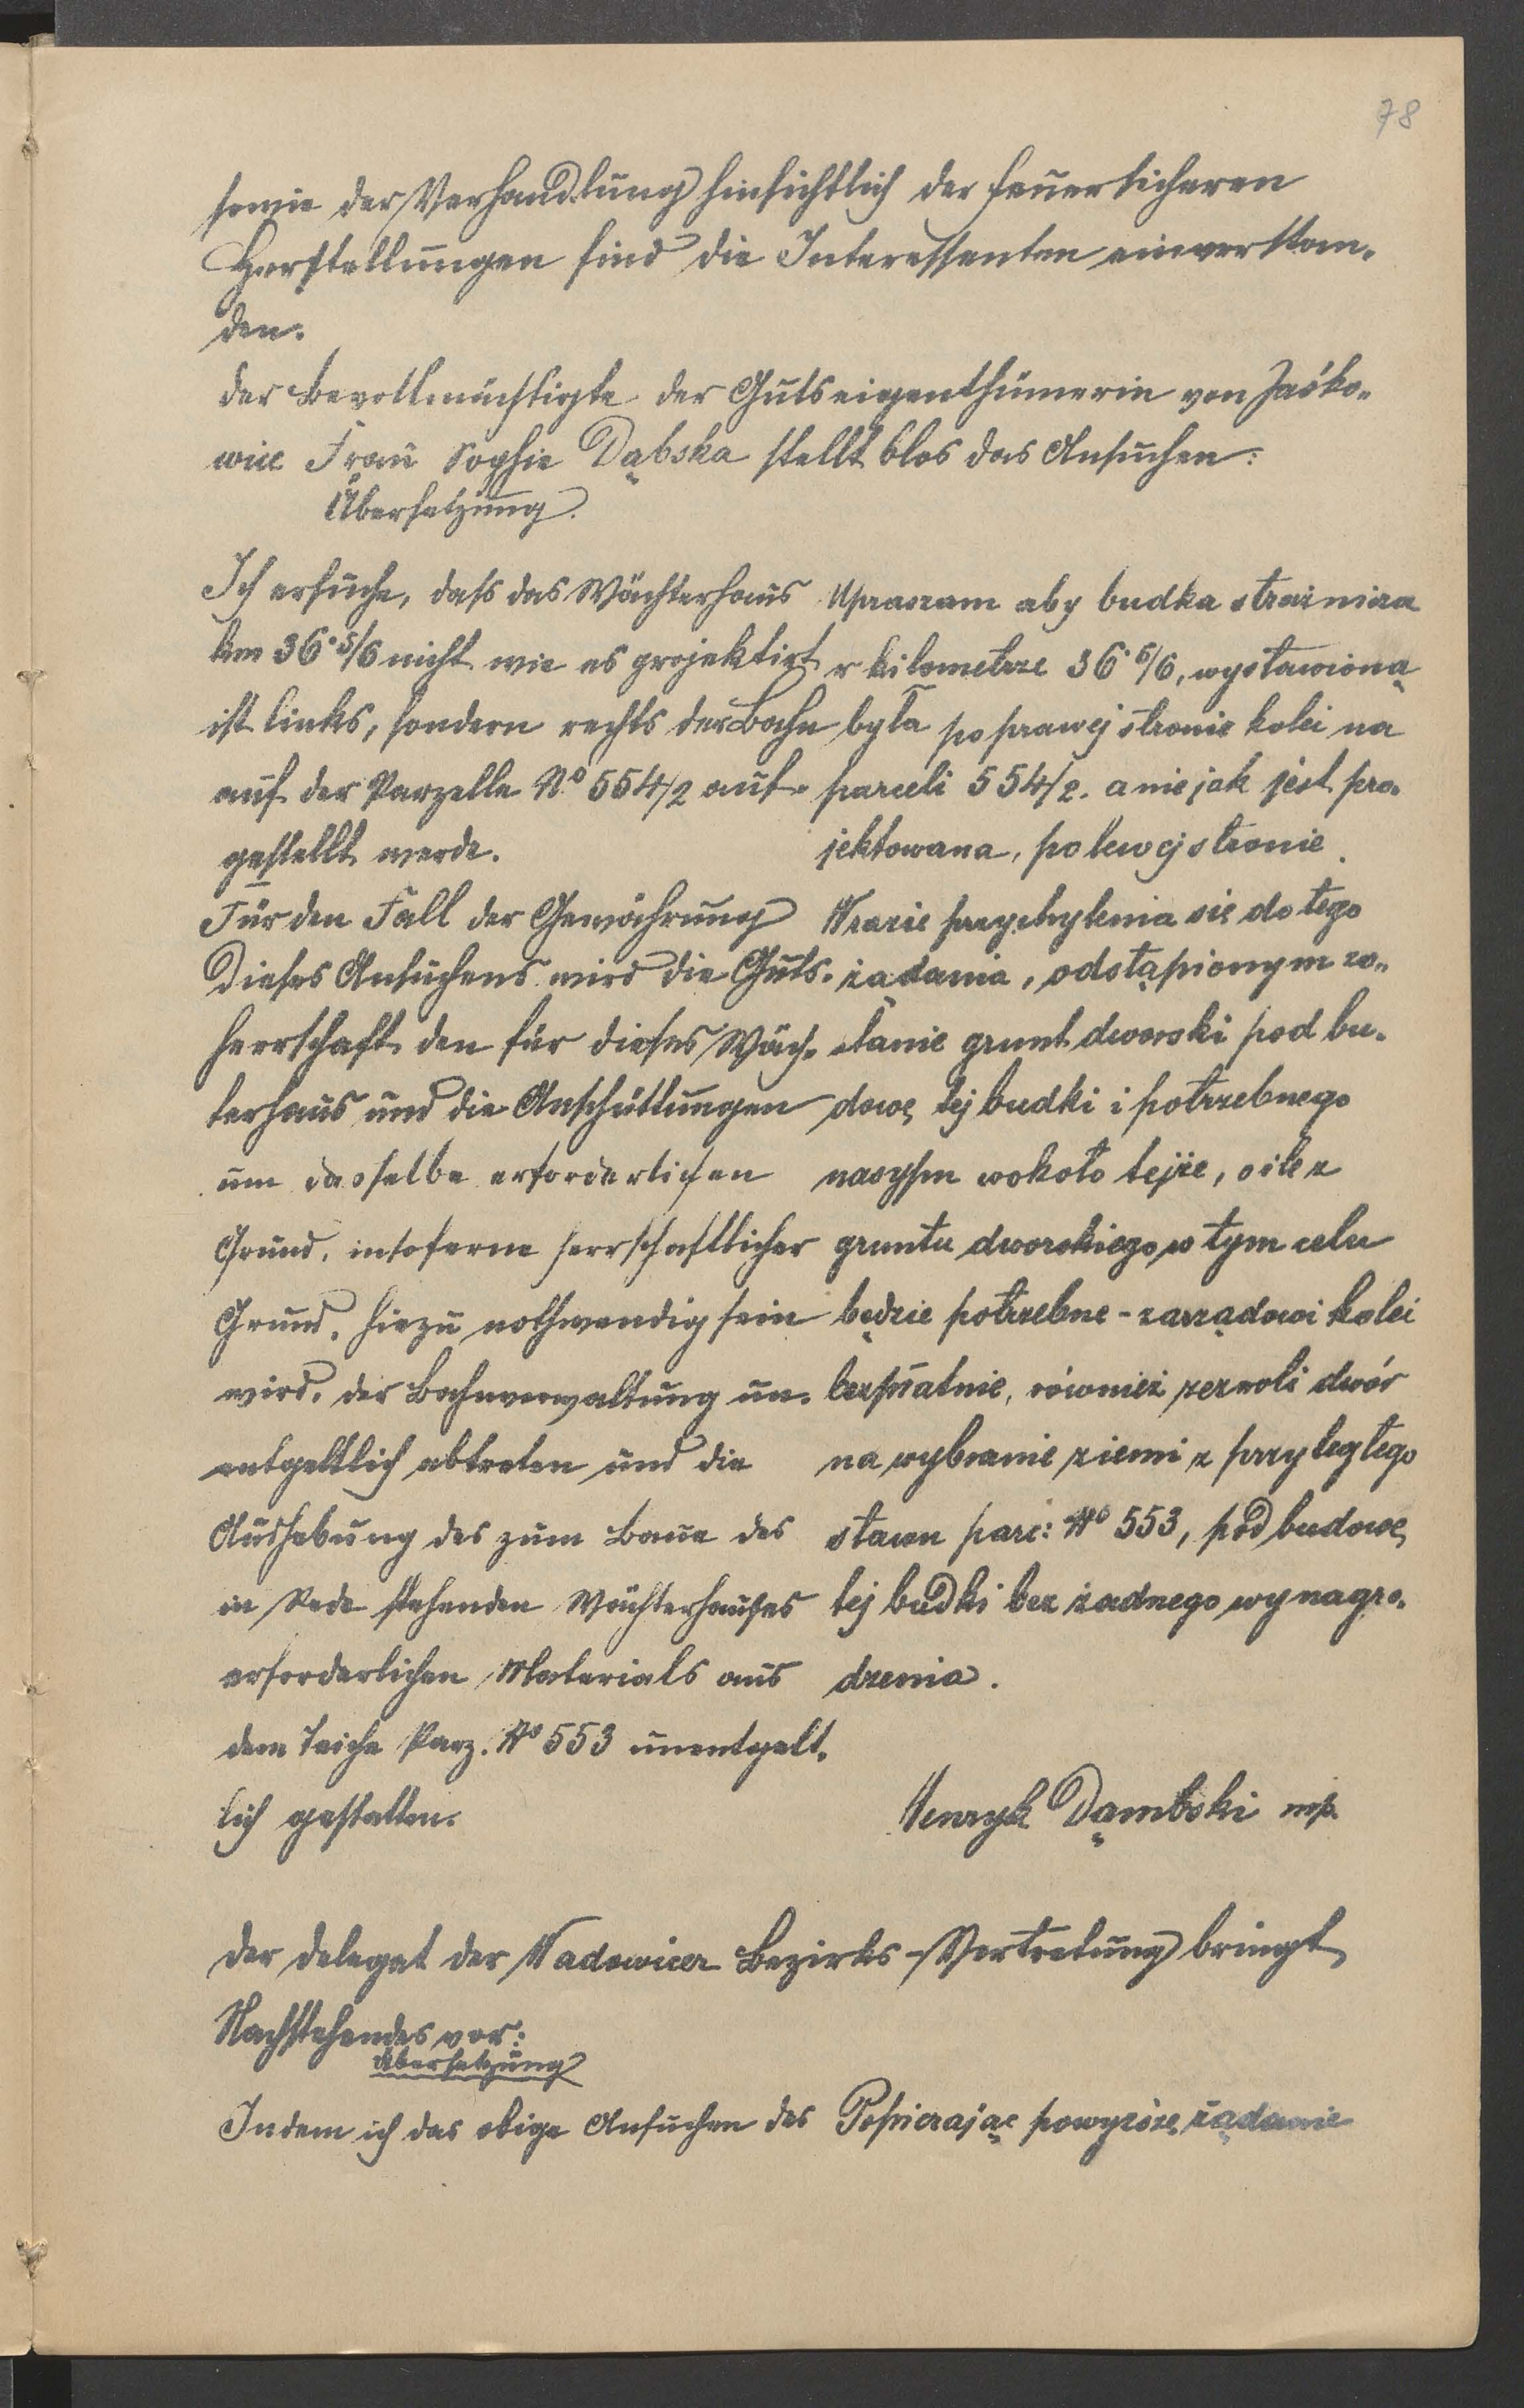 78
sowie der Verhandlung hinsichtlich der feuersicheren
Herstellungen sind die Interessenten einverstan-
den.
Der Bevollmächtigte der Gutseigenthümerin von Jaśko-
wice Frau Sophie Dąbska stellt blos das Ansuchen:
Übersetzung.
Ich ersuche, dass das Wächterhaus
km 36·5/6 nicht wie es projektirt
ist links, sondern rechts der Bahn
auf der Parzelle No 554/2 auf-
gestellt werde.
Für den Fall der Gewährung
dieses Ansuchens wird die Guts-
herrschaft den für dieses Wäch-
terhaus und die Anschüttungen
um dasselbe erforderlichen
Grund, insoferne herrschaftlicher
Grund, hiezu nothwendig sein
wird, der Bahnverwaltung un-
entgeltlich abtreten und die
Aushebung des zum Baue des
in Rede stehenden Wächterhauses
erforderlichen Materials aus
dem Teiche Parz. No 553 unentgelt-
lich gestatten.
Upraszam aby budka strażnicza
w kilometrze 36 5/6, wystawioną
była po prawej stronie kolei na
parceli 554/2. a nie jak jest pro-
jektowana, po lewej stronie.
W razie przychylenia się do tego
żądania, odstąpionym zo-
stanie grunt dworski pod bu-
dowę tej budki i potrzebnego
nasypu wokoło tejże, o ile z
gruntu dworskiego w tym celu
będzie potrzebne - zarządowi kolei
bezpłatnie, również zezwoli dwór
na wybranie ziemi z przyległego
stawu parc: No 553, pod budowę
tej budki bez żadnego wynagro-
dzenia.
Henryk Dąmbski mp.
Der Delegat der Wadowicer Bezirks-Vertretung bringt
Nachstehendes vor:
Übersetzung
Indem ich das obige Ansuchen des
Popierając powyższe żądanie